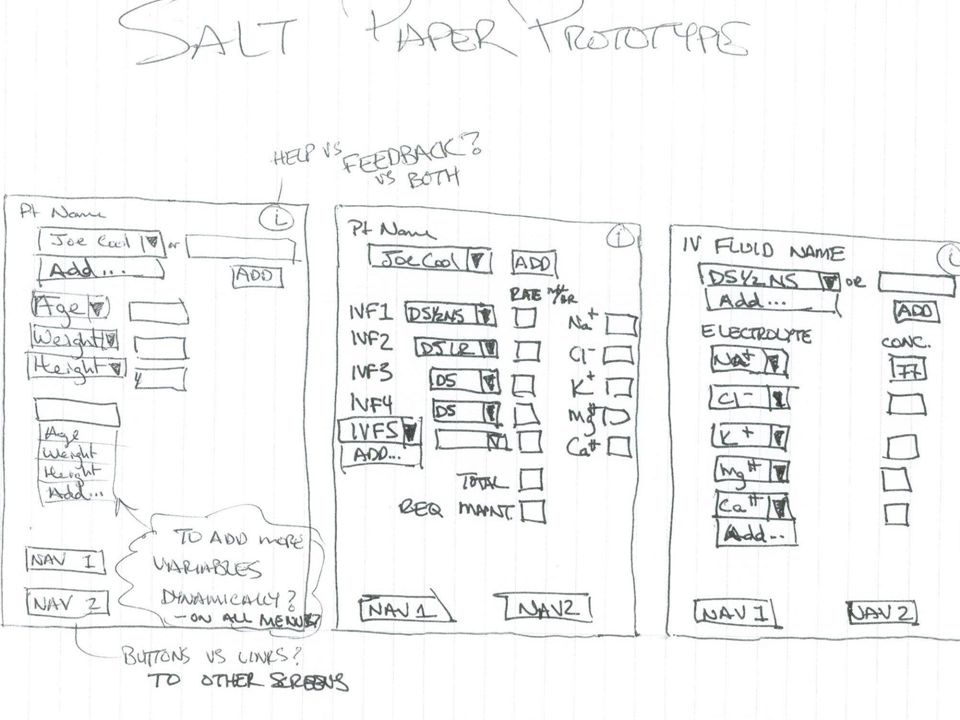 SALT PAPER PROTOTYPE
HELP VS FEEDBACK?
VS BOTH
Pt Name
i
Joe Cool or
Add...
ADD
Age
Weight
Height
Age
Weight
Height
Add...
TO ADD MORE
VARIABLES
DYNAMICALLY?
- ON ALL MENUS?
NAV 1
NAV 2
BUTTONS VS LINKS?
TO OTHER SCREENS
Pt Name
i
Joe Cool ADD
RATE ML/HR
IVF1 D5½NS Na+
IVF2 D5LR Cl-
IVF3 D5 K+
IVF4 D5 Mg++
IVF5 Ca++
ADD...
TOTAL
REQ MAINT.
NAV 1 NAV2
IV FLUID NAME
i
D5½NS OR
Add...
ADD
ELECTROLYTE CONC.
Na+ 77
Cl-
K+
Mg++
Ca++
Add...
NAV 1 NAV 2